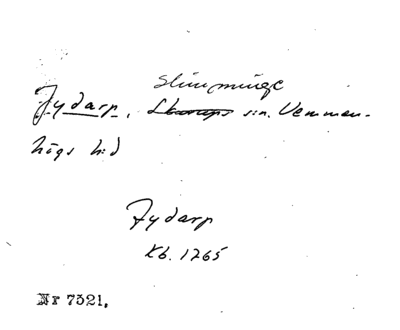 Slimminge
Fydarp, Skurups s:n. Vemmen-
högs hd
Fydarp
Kb. 1265
Nr 7321.